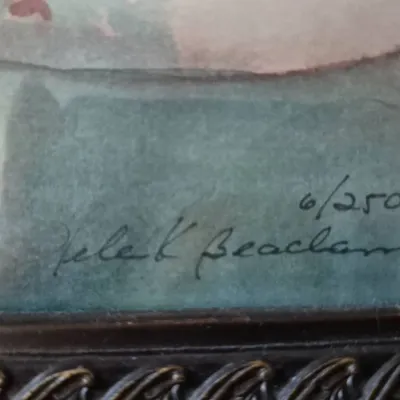 6/250
Hele K Beadam